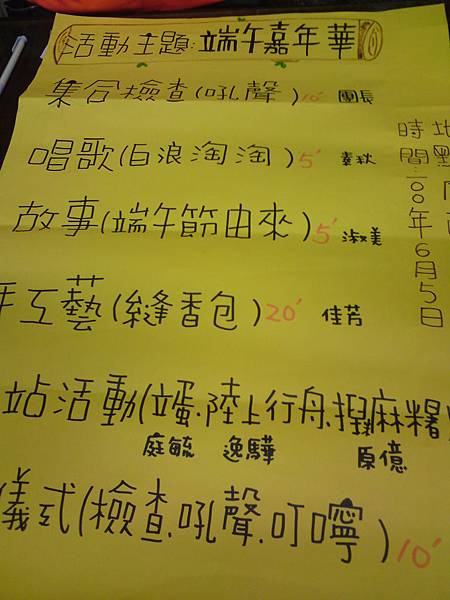 活動主題:端午嘉年華
集合檢查(吼聲)10' 團長
唱歌(白浪淘淘)5' 秦秋
故事(端午節由來)5' 淑美
手工藝(縫香包)20' 佳芳
站活動(立蛋.陸上行舟.捏麻糬)
庭毓 逸驊 原億
儀式(檢查.吼聲.叮嚀)10'
地點
時間:一00年6月5日